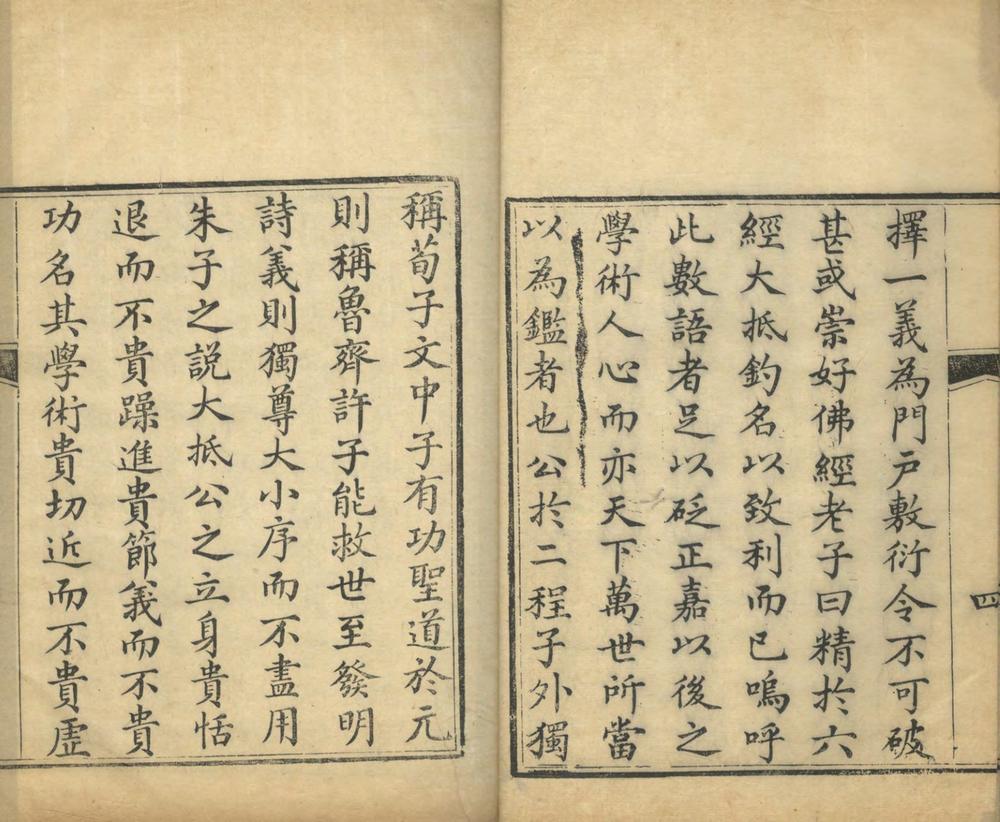 四
擇一義為門戶敷衍令不可破
甚或崇好佛經老子曰精於六
經大抵釣名以致利而已嗚呼
此數語者足以砭正嘉以後之
學術人心而亦天下萬世所當
以為鑑者也公於二程子外獨
稱荀子文中子有功聖道於元
則稱魯齊許子能救世至發明
詩義則獨尊大小序而不盡用
朱子之説大抵公之立身貴恬
退而不貴躁進貴節義而不貴
功名其學術貴切近而不貴虛